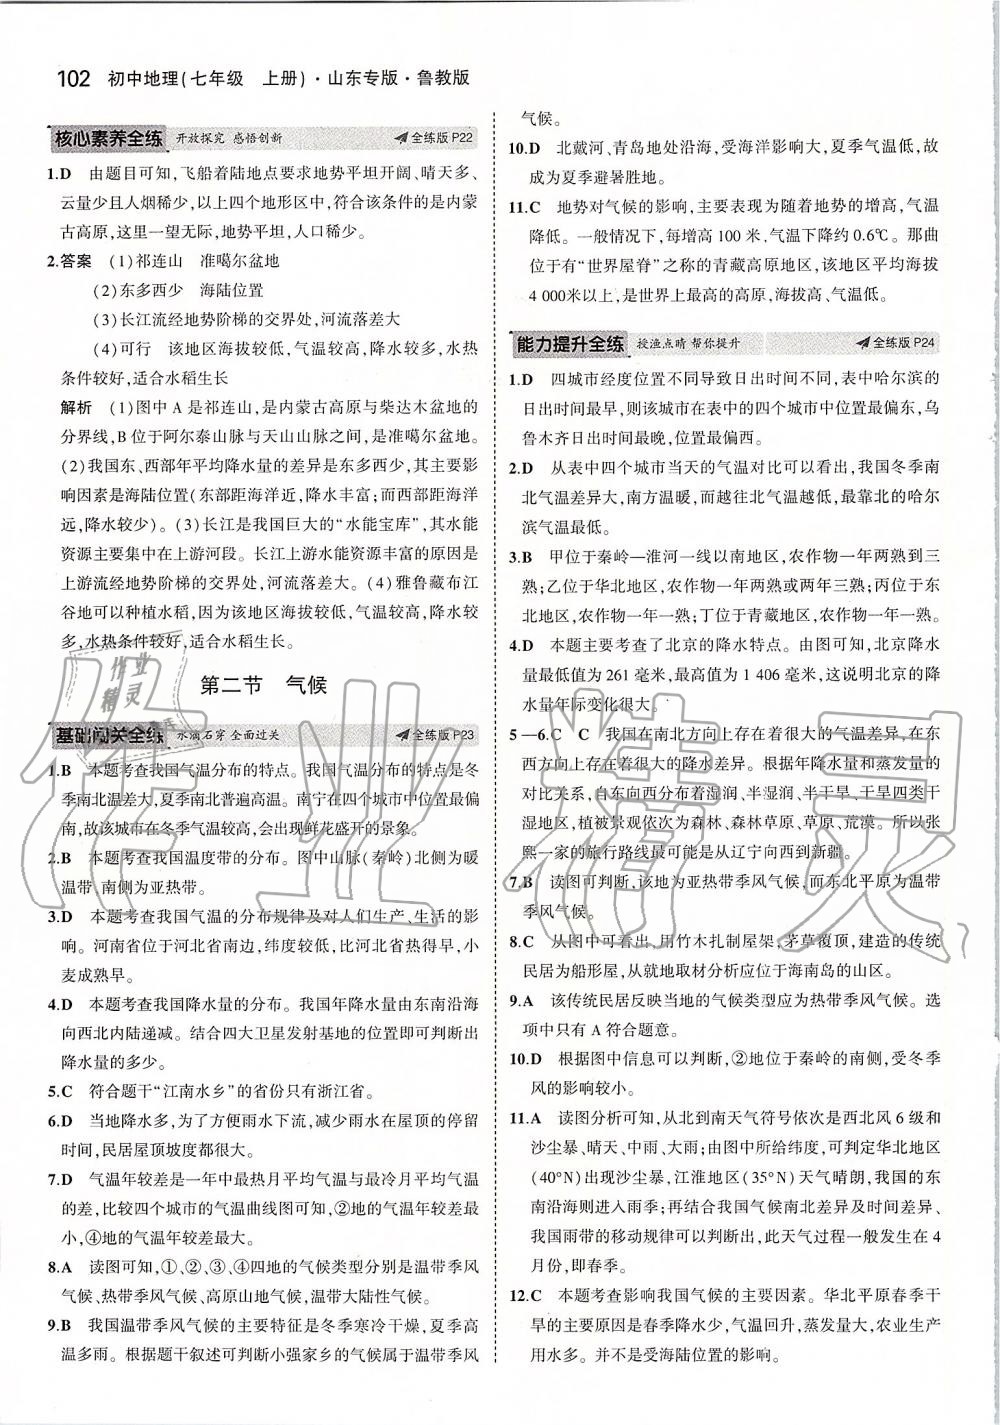 102 初中地理(七年级 上册)·山东专版·鲁教版
核心素养全练 开放探究 感悟创新 全练版 P22
1.D 由题目可知,飞船着陆地点要求地势平坦开阔、晴天多、
云量少且人烟稀少,以上四个地形区中,符合该条件的是内蒙
古高原,这里一望无际,地势平坦,人口稀少。
2.答案 (1)祁连山 准噶尔盆地
(2)东多西少 海陆位置
(3)长江流经地势阶梯的交界处,河流落差大
(4)可行 该地区海拔较低,气温较高,降水较多,水热
条件较好,适合水稻生长
解析 (1)图中 A 是祁连山,是内蒙古高原与柴达木盆地的
分界线,B 位于阿尔泰山脉与天山山脉之间,是准噶尔盆地。
(2)我国东、西部年平均降水量的差异是东多西少,其主要影
响因素是海陆位置(东部距海洋近,降水丰富;而西部距海洋
远,降水较少)。(3)长江是我国巨大的“水能宝库”,其水能
资源主要集中在上游河段。长江上游水能资源丰富的原因是
上游流经地势阶梯的交界处,河流落差大。(4)雅鲁藏布江
谷地可以种植水稻,因为该地区海拔较低,气温较高,降水较
多,水热条件较好,适合水稻生长。
第二节 气候
基础闯关全练 水滴石穿 全面过关 全练版 P23
1.B 本题考查我国气温分布的特点。我国气温分布的特点是冬
季南北温差大,夏季南北普遍高温。南宁在四个城市中位置最偏
南,故该城市在冬季气温较高,会出现鲜花盛开的景象。
2.B 本题考查我国温度带的分布。图中山脉(秦岭)北侧为暖
温带,南侧为亚热带。
3.D 本题考查我国气温的分布规律及对人们生产、生活的影
响。河南省位于河北省南边,纬度较低,比河北省热得早,小
麦成熟早。
4.D 本题考查我国降水量的分布。我国年降水量由东南沿海
向西北内陆递减。结合四大卫星发射基地的位置即可判断出
降水量的多少。
5.C 符合题干“江南水乡”的省份只有浙江省。
6.D 当地降水多,为了方便雨水下流,减少雨水在屋顶的停留
时间,民居屋顶坡度都很大。
7.D 气温年较差是一年中最热月平均气温与最冷月平均气温
的差,比较四个城市的气温曲线图可知,②地的气温年较差最
小,④地的气温年较差最大。
8.A 读图可知,①、②、③、④四地的气候类型分别是温带季风
气候、热带季风气候、高原山地气候、温带大陆性气候。
9.B 我国温带季风气候的主要特征是冬季寒冷干燥,夏季高
温多雨。根据题干叙述可判断小强家乡的气候属于温带季风
气候。
10.D 北戴河、青岛地处沿海,受海洋影响大,夏季气温低,故
成为夏季避暑胜地。
11.C 地势对气候的影响,主要表现为随着地势的增高,气温
降低。一般情况下,每增高 100 米,气温下降约 0.6℃。那曲
位于有“世界屋脊”之称的青藏高原地区,该地区平均海拔
4 000米以上,是世界上最高的高原,海拔高、气温低。
能力提升全练 授渔点睛 帮你提升 全练版 P24
1.D 四城市经度位置不同导致日出时间不同,表中哈尔滨的
日出时间最早,则该城市在表中的四个城市中位置最偏东,乌
鲁木齐日出时间最晚,位置最偏西。
2.D 从表中四个城市当天的气温对比可以看出,我国冬季南
北气温差异大,南方温暖,而越往北气温越低,最靠北的哈尔
滨气温最低。
3.B 甲位于秦岭—淮河一线以南地区,农作物一年两熟到三
熟;乙位于华北地区,农作物一年两熟或两年三熟;丙位于东
北地区,农作物一年一熟;丁位于青藏地区,农作物一年一熟。
4.D 本题主要考查了北京的降水特点。由图可知,北京降水
量最低值为 261 毫米,最高值为 1 406 毫米,这说明北京的降
水量年际变化很大。
5—6.C C 我国在南北方向上存在着很大的气温差异,在东
西方向上存在着很大的降水差异。根据年降水量和蒸发量的
对比关系,自东向西分布着湿润、半湿润、半干旱、干旱四类干
湿地区,植被景观依次为森林、森林草原、草原、荒漠。所以张
熙一家的旅行路线最可能是从辽宁向西到新疆。
7.B 读图可判断,该地为亚热带季风气候,而东北平原为温带
季风气候。
8.C 从图中可看出,用竹木扎制屋架,茅草覆顶,建造的传统
民居为船形屋,从就地取材分析应位于海南岛的山区。
9.A 该传统民居反映当地的气候类型应为热带季风气候。选
项中只有 A 符合题意。
10.D 根据图中信息可以判断,②地位于秦岭的南侧,受冬季
风的影响较小。
11.A 读图分析可知,从北到南天气符号依次是西北风 6 级和
沙尘暴、晴天、中雨、大雨;由图中所给纬度,可判定华北地区
(40°N)出现沙尘暴,江淮地区(35°N)天气晴朗,我国的东
南沿海则进入雨季;再结合我国气候南北差异及时间差异、
我国雨带的移动规律可以判断出,此天气过程一般发生在 4
月份,即春季。
12.C 本题考查影响我国气候的主要因素。华北平原春季干
旱的主要原因是春季降水少,气温回升,蒸发量大,农业生产
用水多。并不是受海陆位置的影响。
作业精灵